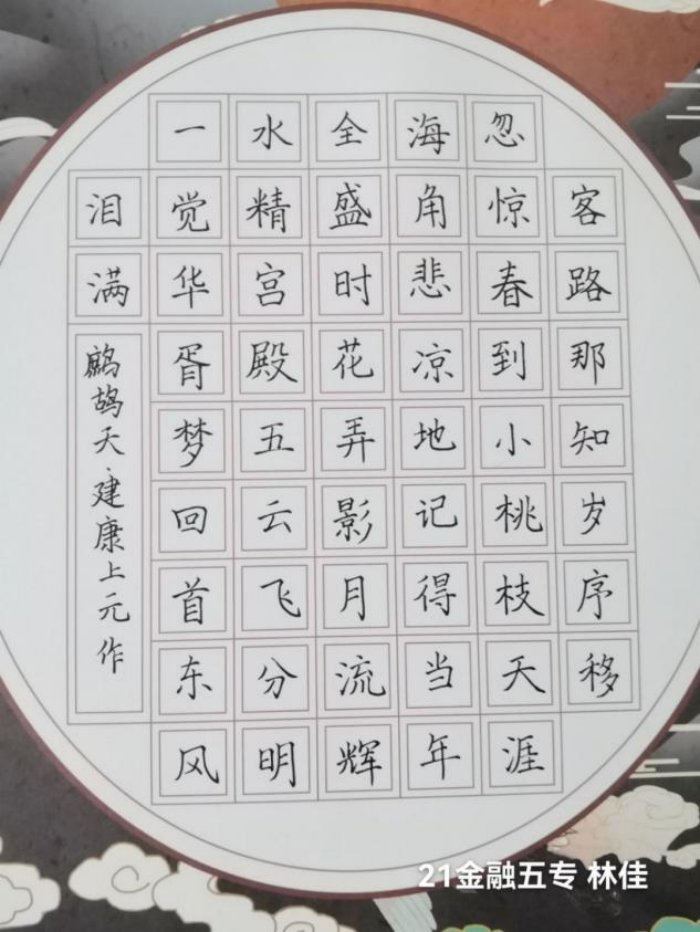 客路那知岁序移
忽惊春到小桃枝天涯
海角悲凉地记得当年
全盛时花弄影月流辉
水精宫殿五云飞分明
一觉华胥梦回首东风
泪满
鹧鸪天·建康上元作
21金融五专 林佳